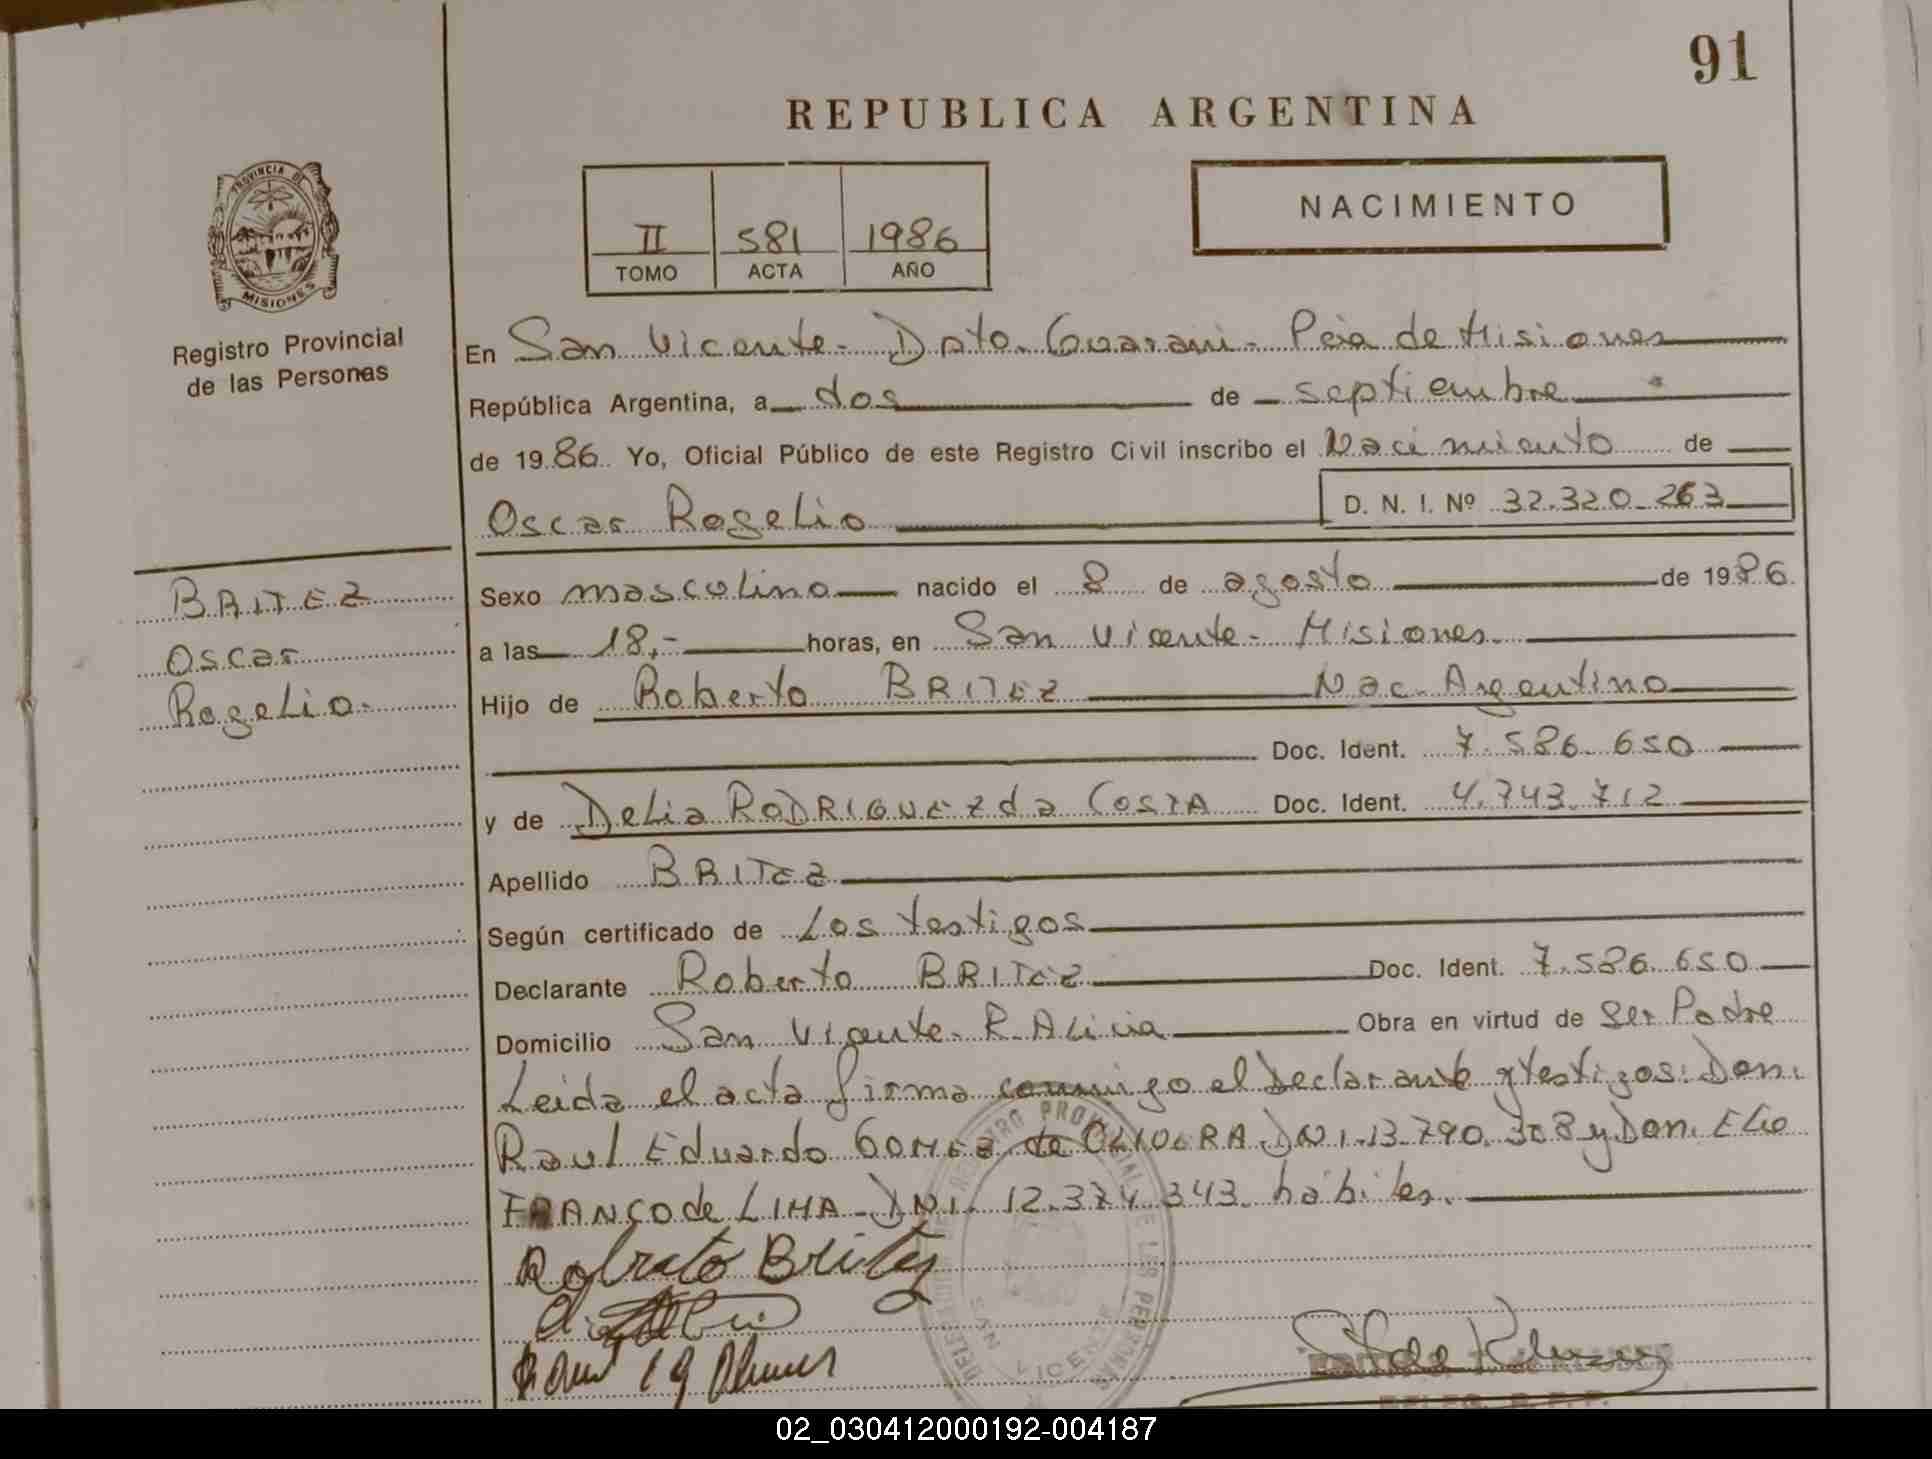 91
REPUBLICA ARGENTINA
PROVINCIA DE
MISIONES
Registro Provincial
de las Personas
II 581 1986
TOMO ACTA AÑO
NACIMIENTO
En San Vicente - Dpto. Guarani - Pcia de Misiones
República Argentina, a dos de septiembre
de 1986. Yo, Oficial Público de este Registro Civil inscribo el Nacimiento de
Oscar Rogelio D. N. I. Nº 32.320.263
BRITEZ
Oscar
Rogelio.
Sexo masculino nacido el 8 de agosto de 1986.
a las 18,- horas, en San Vicente - Misiones.
Hijo de Roberto BRITEZ Nac. Argentino
Doc. Ident. 7.586.650
y de Delia RODRIGUEZ da COSTA Doc. Ident. 4.743.712
Apellido BRITEZ
Según certificado de Los testigos
Declarante Roberto BRITEZ Doc. Ident. 7.586.650
Domicilio San Vicente - R. Alicia Obra en virtud de Ser Padre
Leida el acta firma conmigo el Declarante y testigos: Don.
Raul Eduardo GOMEZ de OLIVERA DNI. 13.790.308 y Don. Elio
FRANCO de LIMA - DNI. 12.374.343. hábiles.
Roberto Britez
SAN VICENTE
02_030412000192-004187